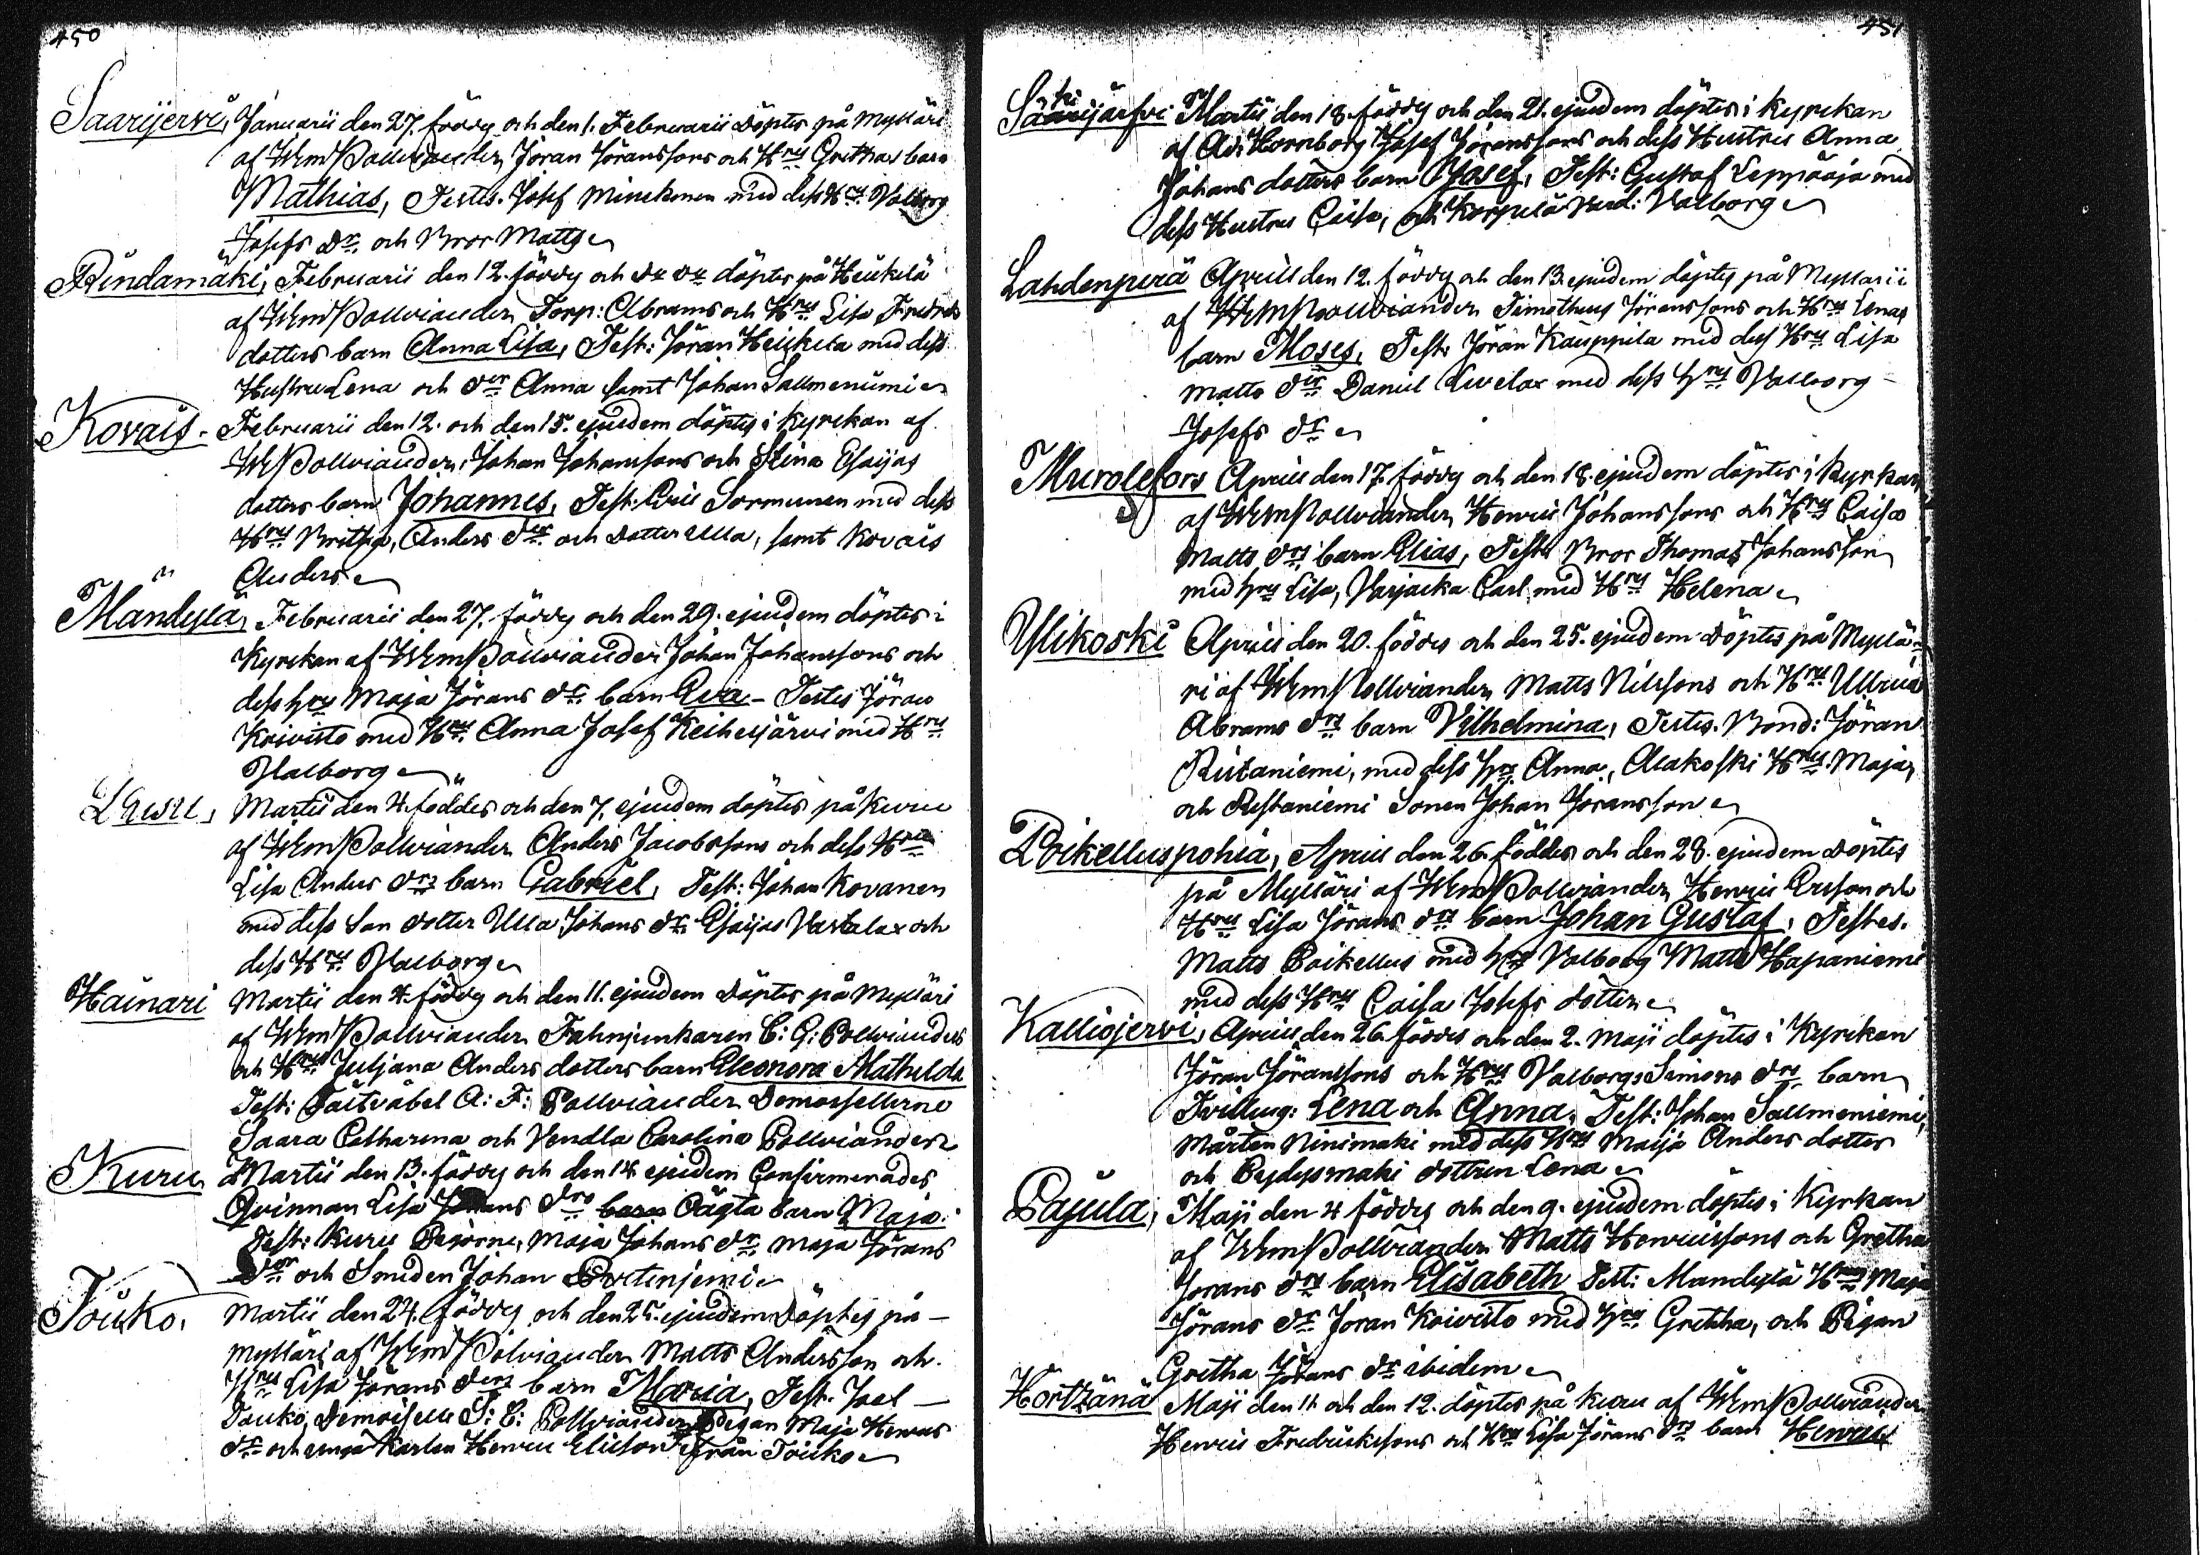 450
Saarijervi, Januarii den 27. föddes och den 1. Februarii döptes på Mylläri
af WemPolliander, Jöran Jöranssons och Hrus Grethas barn
Mathias, Testes. Josef Minckonen med dess Hru Valborg
Josefs Dr. och Bror Matts
Rindamäki, Februarii den 12. föddes och do do döptes på Heickilä
af WemPolviander, Torp: Abrams och Hrus Lisa Fredrics
dotters barn Anna Lisa, Test: Jöran Heickila med dess
Hustru Lena och dr Anna samt Johan Sallmenümi
Kovais. Februarii den 12. och den 15. ejusdem döptes i Kyrckan af
WPolviander, Johan Johanssons och Stina Esaijas
dotters barn Johannes, Test: Eric Sormunen med dess
Hru Britha, Anders dr och dotter Ulla, samt Kovais
Anders
Mändylä, Februarii den 27. föddes och den 29. ejusdem döptes i
Kyrckan af WemPolviander Johan Johanssons och
dess hru Maja Jörans dr barn Eva - Testes Jöran
Koivisto med Hru Anna Josef Keihesjärvi med Hru
Valborg
Lausu, Martii den 4. föddes och den 7. ejusdem döptes på Kuru
af WemPolviander Anders Jacobssons och dess Hru
Lisa Anders drs barn Gabriel, Test: Johan Kovanen
med dess Son dotter Ulla Johans dr Esaijas Vartalax och
dess Hru Valborg
Hainari Martii den 4. föddes och den 11. ejusdem döptes på Mylläri
af WemPolviander Fahnjunkaren C: G: Pollvianders
och Hrus Juljana Anders dotters barn Eleonora Mathilda
Test: Fältväbel A: F: Pollviander Demoissellerne
Saara Catharina och Vendla Carolina Pollviander
Kuru Martii den 13. föddes och den 14 ejusdem Confirmerades
Qvinnan Lisa Johans drs barn Oägta barn Maja.
Test: Kuru Björne, Maja Johans dr Maja Jörans
dr och Smeden Johan
Touko. Martii den 24. föddes och den 25. ejusdem Döptes på -
Mylläri af WemPolviander Matts Andersson och
Hrus Lisa Jörans drs barn Maria, Test. Joel -
Touko, Demoiselle S: C: Pollviander, Pigan Maja Henrics
dr och unga Karlen Henric Elisson från Touko
451
Saarijärfvi Martii den 18. föddes och den 21. ejusdem döptes i Kyrckan
af Ad: Hornborg Josef Jöranssons och dess Hustrus Anna
Johans dotters barn Josef, Test: Gustaf Leppäoja med
dess Hustru Caisa, och Korpelä Vard: Valborg
Lahdenperä Aprill den 12. föddes och den 13. ejusdem döptes på Myllärii
af WemPollviander Timotheus Jöranssons och Hrus Lenas
barn Moses, Test: Jöran Kauppila med dess Hru Lisa
Matts dr Daniel Livelax med dess hru Valborg -
Josefs dr
Murolefors Aprill den 17. föddes och den 18. ejusdem döptes i Kyrkan
af WemPollviander Henric Johanssons och Hrus Caisa
Matts drs barn Elias, Test: Bror Thomas Johansson
med hru Lisa, Varjacka Carl med Hru Helena
Ylikoski Aprill den 20. föddes och den 25. ejusdem döptes på Mylä-
ri af WemPollviander Matts Nilssons och Hrus Ullrica
Abrams drs barn Vilhelmina, Testes. Bond: Jöran
Riitaniemi, med dess hru Anna, Alakoski Hru Maja,
och Sonen Johan Joransson
Poikelluspohia, Aprill den 26. föddes och den 28. ejusdem döptes
på Mylläri af WemPollviander Henric Ersson och
Hrus Lisa Jörans drs barn Johan Gustaf, Testes.
Matts Poikellus med hru Valborg Matts Hapaniemi
med dess Hru Caisa Josefs dotter
Kalliojervi, Aprill den 26. föddes och den 2. Maji döptes i Kyrckan
Jöran Jöranssons och Hrus Valborgs Simons drs barn
Tvilling: Lena och Anna. Test: Johan Sallmeniemi,
Mårten Ninimäki med dess Hru Maija Anders dotter
och dottren Lena
Pajula, Maji den 4 föddes och den 9. ejusdem döptes i Kyrkan
af WemPollviander Matts Henricssons och Gretha
Jorans drs barn Elisabeth Test: Mandylä Hru Maja
Jörans dr Joran Koivisto med hru Gretha, och Pigan
Gretha Jörans dr ibidem
Hörtzänä Maji den 11 och den 12. döptes på Kuru af WemPollviander
Henric Fredrickssons och Hrus Lisa Jörans drs barn Henric